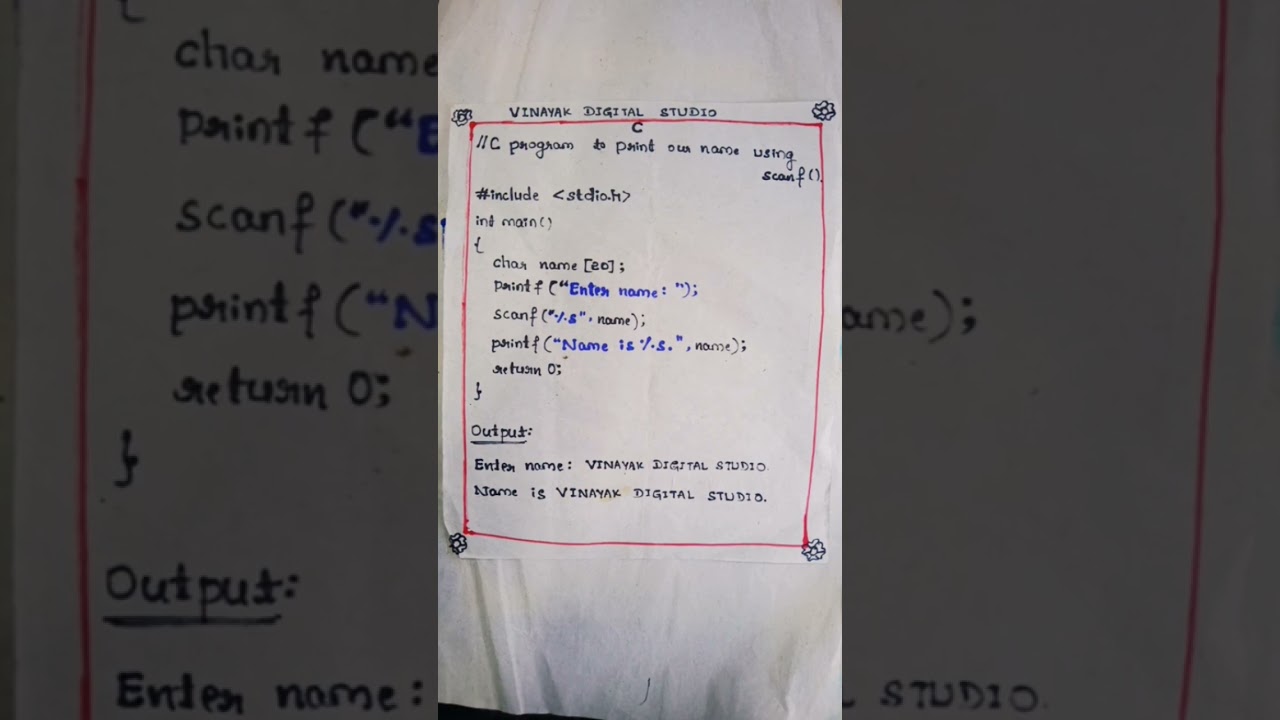 VINAYAK DIGITAL STUDIO
C
//C program to print our name using
scanf().
#include <stdio.h>
int main()
{
char name [20];
printf ("Enter name: ");
scanf("%s", name);
printf("Name is %s.", name);
return 0;
}
Output:
Enter name: VINAYAK DIGITAL STUDIO.
Name is VINAYAK DIGITAL STUDIO.